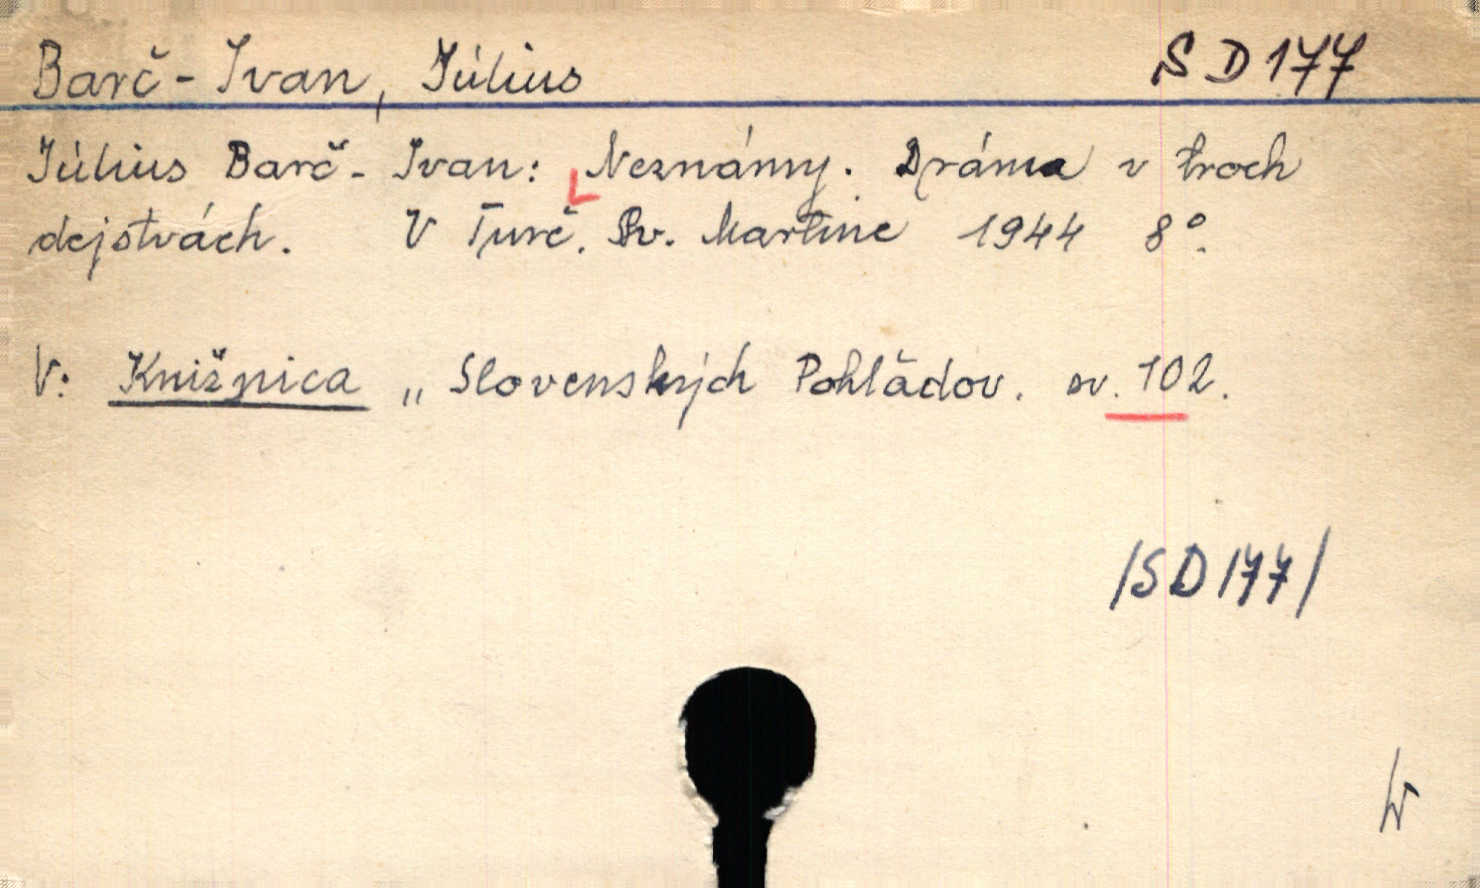 Barč-Ivan, Július SD177
Július Barč-Ivan: Neznámy. Dráma v troch
dejstvách. V Turč. Sv. Martine 1944 8°.
V: Knižnica „Slovenských Pohľadov. sv. 102.
/SD177/